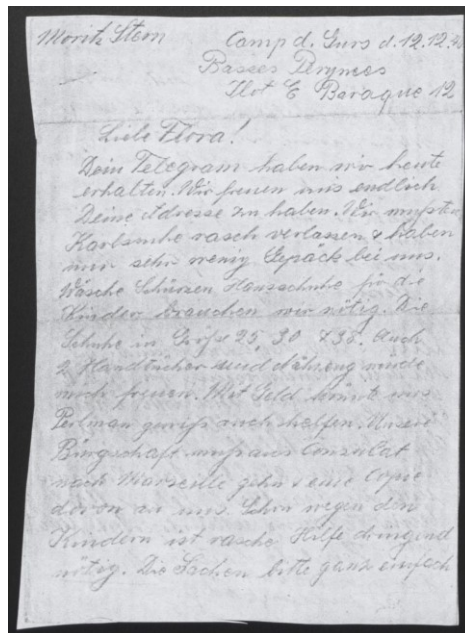 Moritz Stern Camp d. Gurs d. 12.12.
Basses Pyrenees
Ilot E Baraque 12
Liebe Flora!
Dein Telegram haben wir heute
erhalten. Wir freuen uns endlich
Deine Adresse zu haben. Wir mußten
Karlsruhe rasch verlassen & haben
nur sehr wenig Gepäck bei uns.
Wäsche Schürzen Hausschuhe für die
Kinder brauchen wir nötig. Die
Schuhe in Größe 25, 30 & 38. Auch
2 Handtücher und würde
mich freuen. Mit Geld könnte uns
Perlman gewiß auch helfen. Unsere
Bürgschaft muß ans Consulat
nach Marseille gehn & eine Copie
davon an uns. Schon wegen den
Kindern ist rasche Hilfe dringend
nötig. Die Sachen bitte ganz einfach